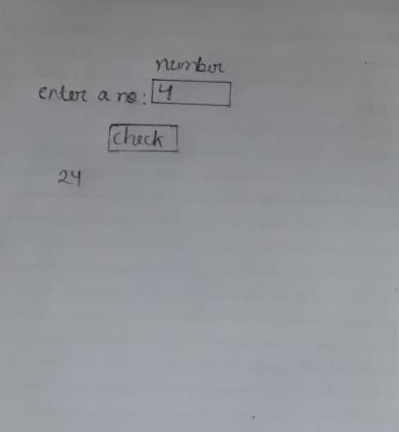 number
enter a no: 4
check
24